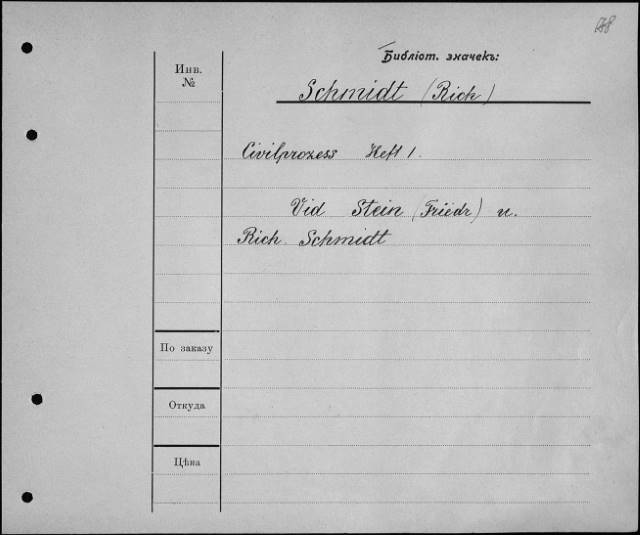 178
Библіот. значекъ:
Инв.
№
Schmidt (Rich)
Civilprozess Heft 1.
Vid Stein (Friedr) u.
Rich. Schmidt
По заказу
Откуда
Цѣна